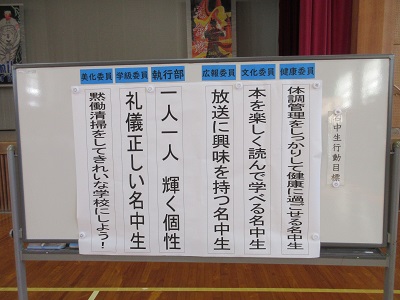 名中生行動目標
健康委員
体調管理をしっかりして健康に過ごせる名中生
文化委員
本を楽しく読んで学べる名中生
広報委員
放送に興味を持つ名中生
執行部
一人一人 輝く個性
学級委員
礼儀正しい名中生
美化委員
黙働清掃をしてきれいな学校にしよう!